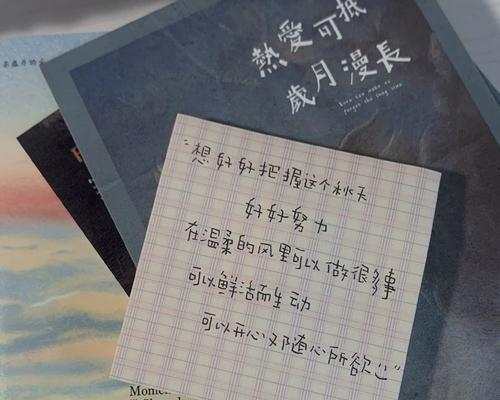 熱愛可抵
歲月漫長
Love can make us
forget the long time
"想好好把握这个秋天
好好努力
在温柔的风里可以做很多事
可以鲜活而生动
可以开心又随心所欲"